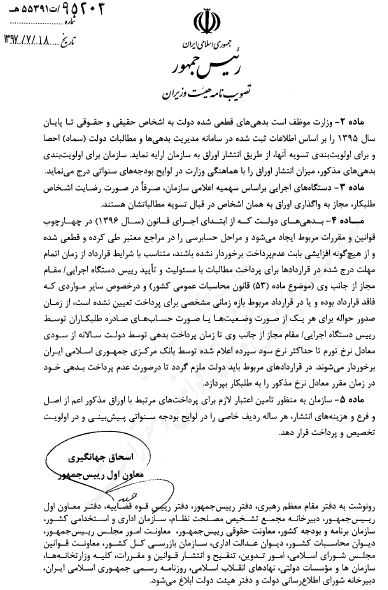 ۹۵۲۰۲/ت۵۵۳۹۱هـ
شماره
تاریخ ۱۳۹۷/۷/۱۸
جمهوری اسلامی ایران
رئیس جمهور
تصویب نامه هیئت وزیران
ماده ۲- وزارت موظف است بدهی‌های قطعی شده دولت به اشخاص حقیقی و حقوقی تا پایان
سال ۱۳۹۵ را بر اساس اطلاعات ثبت شده در سامانه مدیریت بدهی‌ها و مطالبات دولت (سماد) احصا
و برای اولویت‌بندی تسویه آنها، از طریق انتشار اوراق به سازمان ارایه نماید. سازمان برای اولویت‌بندی
بدهی‌های مذکور، میزان انتشار اوراق را با هماهنگی وزارت در لوایح بودجه‌های سنواتی درج می‌نماید.
ماده ۳- دستگاه‌های اجرایی براساس سهمیه اعلامی سازمان، صرفاً در صورت رضایت اشخاص
طلبکار، مجاز به واگذاری اوراق به همان اشخاص در قبال تسویه مطالباتشان هستند.
مـــاده ۴- بدهـی‌های دولـت کـه از ابتدای اجرای قانون (سال ۱۳۹۶) در چهارچوب
قوانین و مقررات مربوط ایجاد می‌شود و مراحل حسابرسی را در مراجع معتبر طی کرده و قطعی شده
و از هیچ‌گونه افزایشی بابت عدم‌پرداخت برخوردار نشده باشند، متناسب با شرایط قرارداد از زمان اتمام
مهلت درج شده در قراردادها برای پرداخت مطالبات با مسئولیت و تأیید رییس دستگاه اجرایی/ مقام
مجاز از جانب وی (موضوع ماده (۵۳) قانون محاسبات عمومی کشور) و درخصوص سایر مواردی که
فاقد قرارداد بوده و یا در قرارداد مربوط بازه زمانی مشخصی برای پرداخت تعیین نشده است، از زمان
صدور حواله برای هر یک از صورت وضعیت‌ها یا صورت حساب‌های صادره طلبکاران توسط
رییس دستگاه اجرایی/ مقام مجاز از جانب وی تا زمان پرداخت بدهی توسط دولت سالانه از سودی
معادل نرخ تورم تا حداکثر نرخ سود سپرده اعلام شده توسط بانک مرکزی جمهوری اسلامی ایران
برخوردار می‌شوند. در قراردادهای مربوط باید دولت ملزم گردد تا درصورت عدم پرداخت بدهی خود
در زمان مقرر معادل نرخ مذکور را به طلبکار بپردازد.
ماده ۵- سازمان به منظور تامین اعتبار لازم برای پرداخت‌های مرتبط با اوراق مذکور اعم از اصل
و فرع و هزینه‌های انتشار، هر ساله ردیف خاصی را در لوایح بودجه سنواتی پیش‌بینی و در اولویت
تخصیص و پرداخت قرار دهد.
اسحاق جهانگیری
معاون اول رییس‌جمهور
رونوشت به دفتر مقام معظم رهبری، دفتر رییس‌جمهور، دفتر رییس قوه قضاییه، دفتر معاون اول
رییس‌جمهور، دبیرخانه مجمع تشخیص مصلحت نظام، سازمان اداری و استخدامی کشور،
سازمان برنامه و بودجه کشور، معاونت حقوقی رییس‌جمهور، معاونت امور مجلس رییس‌جمهور،
دیوان محاسبات کشور، دیوان عدالت اداری، سازمان بازرسی کل کشور، معاونت قوانین
مجلس شورای اسلامی، امور تدوین، تنقیح و انتشار قوانین و مقررات، کلیه وزارتخانه‌ها،
سازمان ها و مؤسسات دولتی، نهادهای انقلاب اسلامی، روزنامه رسمی جمهوری اسلامی ایران،
دبیرخانه شورای اطلاع‌رسانی دولت و دفتر هیئت دولت ابلاغ می‌شود.